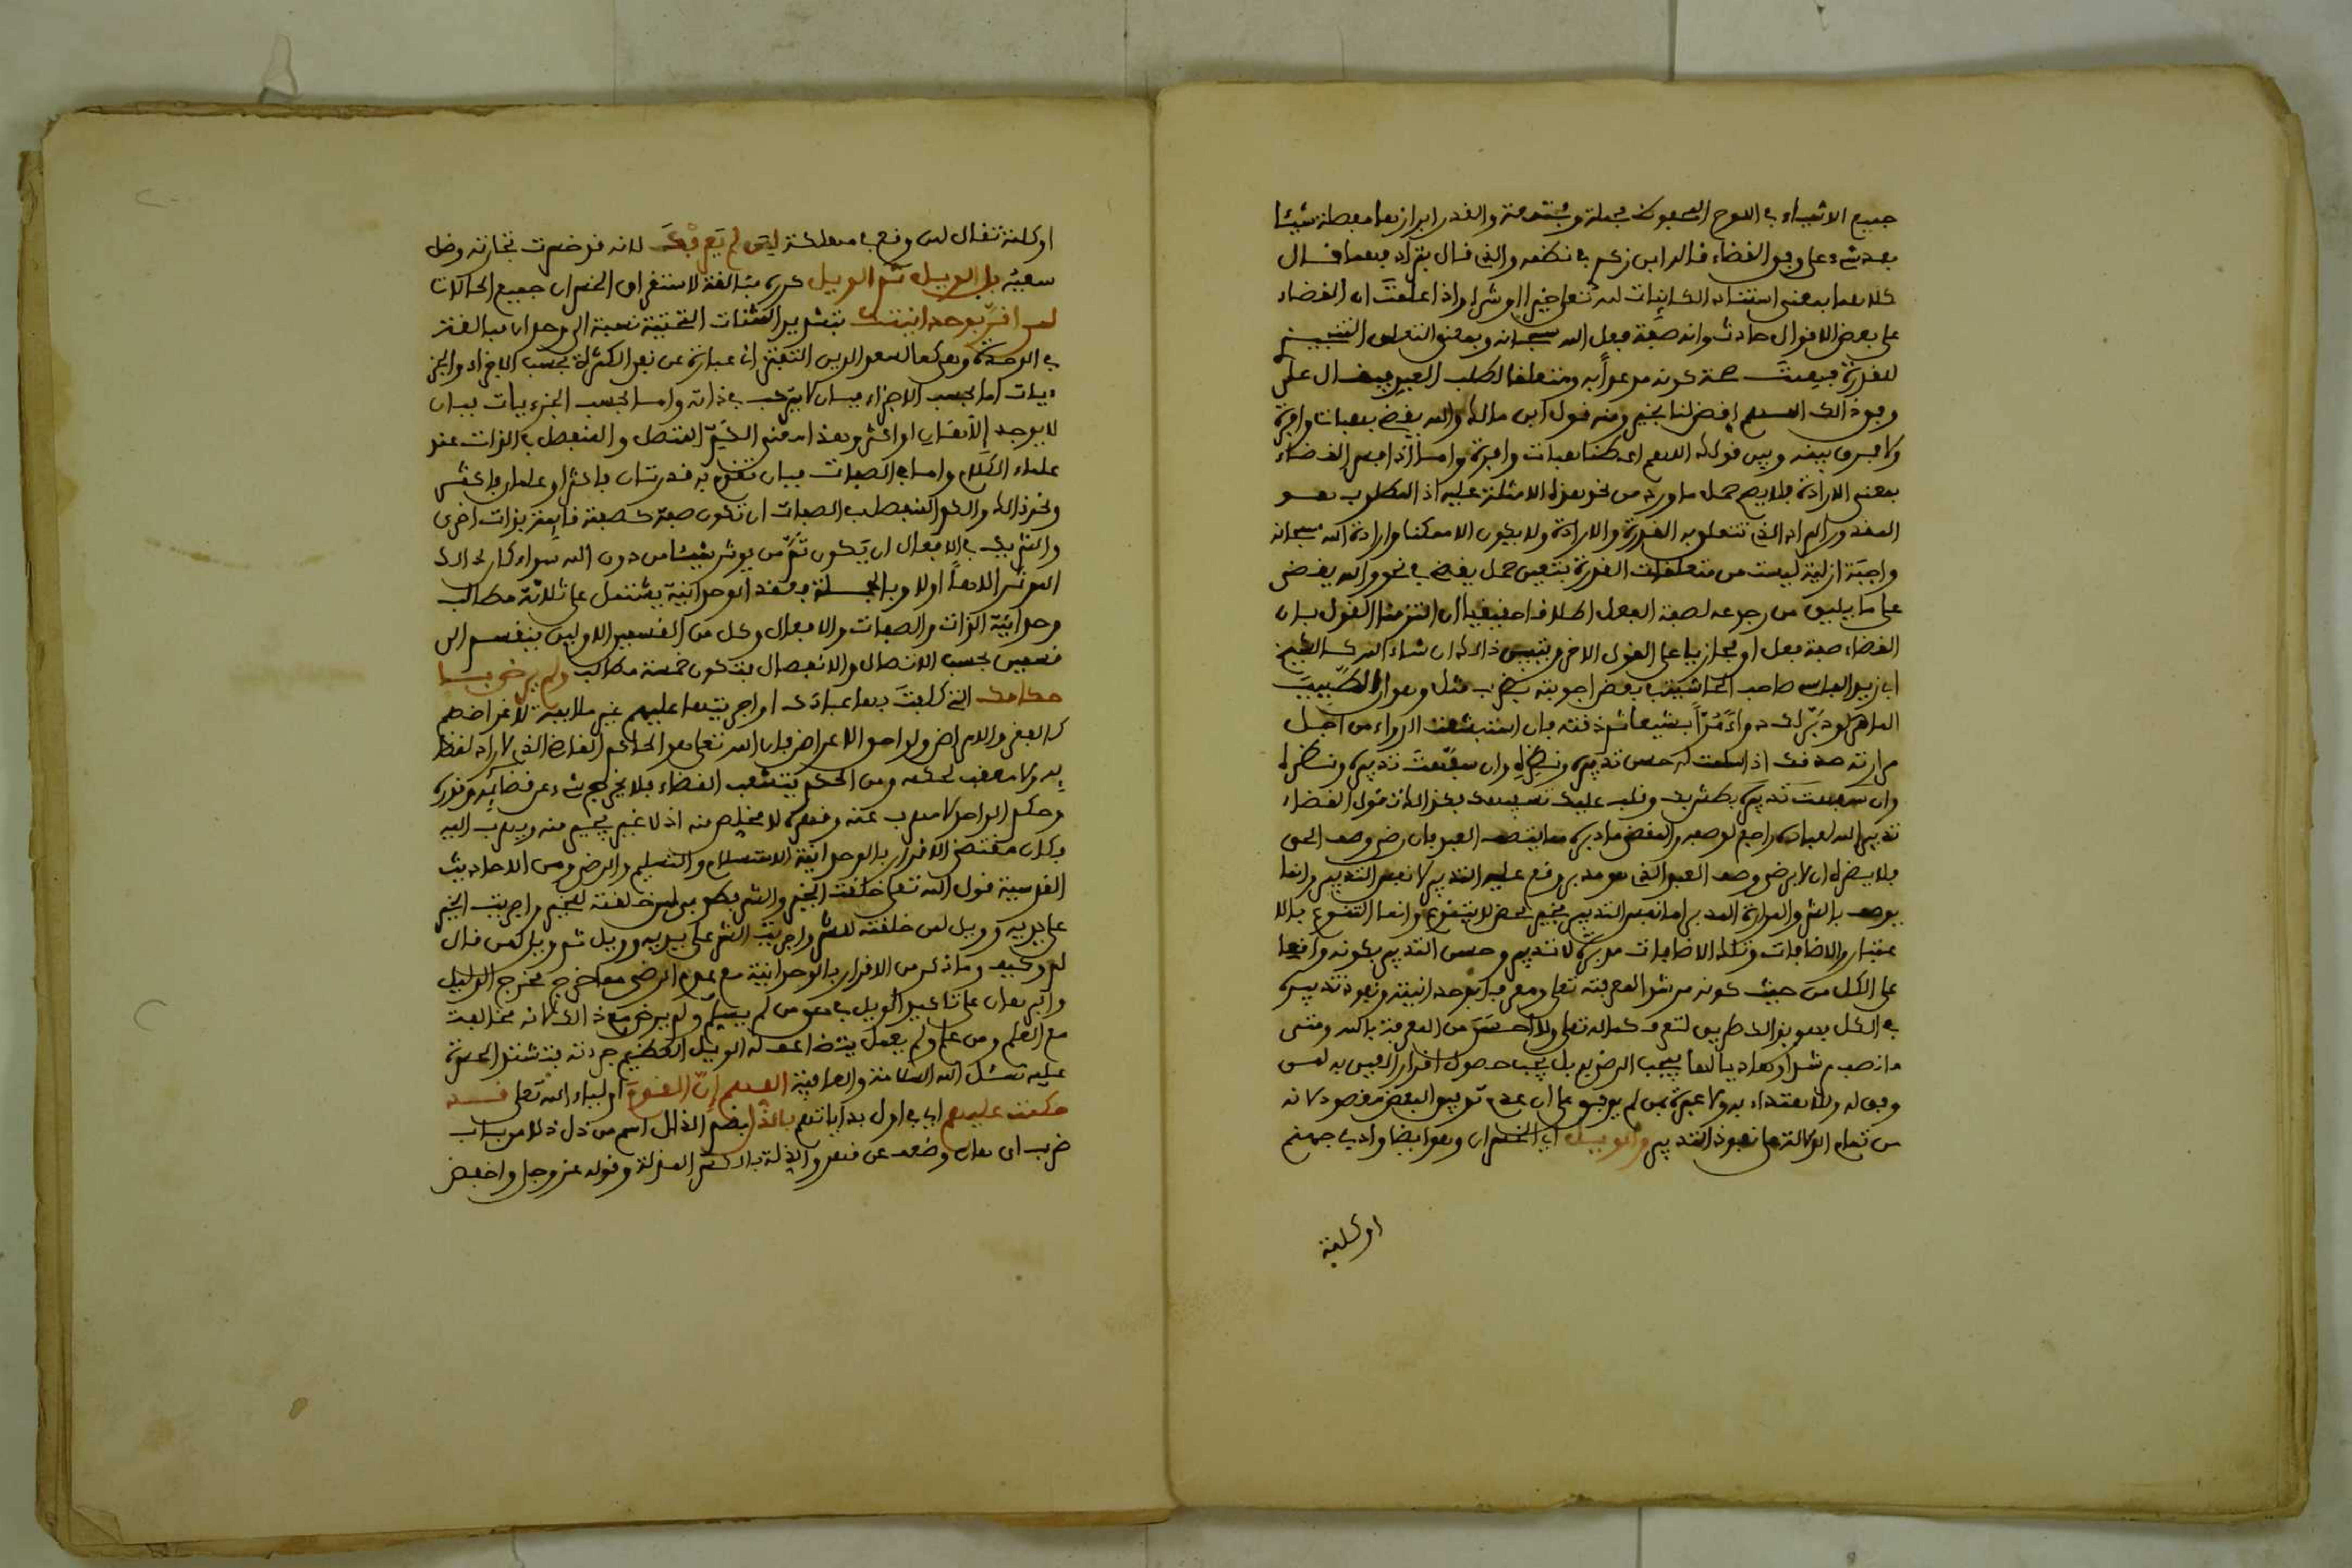 جميع الاشياء في اللوح المحفوظ مجملة والقدر ابرازها مفصلة شيئا
بعد شيء على وفق القضاء قال ابن زكري في نظمه والذي قال بترادفهما قال
كلاهما بمعنى استناد الكائنات لله تعلى خيرا او شرا واذا علمت ان القضاء
على بعض الاقوال حادث وانه صفة فعل الله سبحانه وبمعنى التعلق التنجيزي
للقدرة كونه مدعوا به ومتعلقا لطلب العبد فيقال على
وفق ذالك اللهم اقض لنا بخير ومنه قول ابن مالك والله يقضي بهبات وافرة
ولا فرق بينه وبين قولك اللهم اعطنا هبات وافرة واما اذا فسر القضاء
بمعنى الارادة فلا يصح حمل ما ورد من نحو هذه الامثلة عليه اذ المطلوب هو
المقدور المراد الذي تتعلق به القدرة والارادة ولا يكون الا ممكنا وارادة الله سبحانه
واجبة ازلية ليست من متعلقات القدرة فتعين حمل يقضي في نحو والله يقضي
على ما يليق من رجوعه لصفة الفعل اطلاقا حقيقيا ان التزمنا القول بان
القضاء صفة فعل او مجازيا على القول الاخر ذالك ان شاء الله
ابي زيد الفاسي صاحب الحاشية بعض اجوبته مثل وهو ان الطبيب
الماهر لو دبر لك دواء مرا بشيعا ثم ذقته فان استبشعت الدواء من اجل
مرارته صدقت اذا سلمت له حسن تدبيره ونظره وان سفهت تدبيره ونظره
وان سفهت تدبيره
تدبير الله لعباده راجع لوصفه والمقضي ما دبره مما يتصف العبد فان رضي وصف الحق
فلا يضره ان لا يرضى وصف العبد الذي هو مدبر وقع عليه التدبير لا نفس التدبير وانما
يوصف بالشر والمرارة المدبر اما نفس التدبير فخير محض لا يتنوع وانما التنوع بالا
عتبار والاضافات وتلك الاضافات مدبرة لا تدبير وحسن التدبير بكونه واقعا
على الكل من حيث كونه مرشدا لمعرفته تعلى ومعرفة وحدانيته ونفوذ تدبيره
في الكل فهو بذالك طريق لتعرف كماله تعلى ولا احسن من المعرفة بالله ومتى
من تمام الدلالة على نفوذ التدبير والويل اي الخسران وهو ايضا واد في جهنم
او كلمة
او كلمة تقال لمن وقع في مهلكة لمن لم يعرفك لانه قد خسرت تجارته وضل
سعيه بل الويل ثم الويل كرره مبالغة لاستغراق الخسران جميع الحالات
لمن اقر بوحدانيتك بتشديد المثنات التحتية نسبة الى وحدان مبالغة
في الوحدة وهي كما لسعد الدين التفتزاني عبارة عن نفي الكثرة بحسب الاجزاء والجز
ءيات اما بحسب الاجزاء فبان لا يتركب في ذاته واما بحسب الجزءيات فبان
لا يوجد الهان او اكثر وهذا معنى الكم المتصل والمنفصل في الذات عند
علماء الكلام واما في الصفات فبان تقوم به قدرتان فاكثر او علمان فاكثر
ونحو ذالك والكم المنفصل في الصفات ان تكون صفة كصفته قايمة بذات اخرى
والشريك في الافعال ان يكون ثم من يوثر شيئا من دون الله سواء كان ذالك
الموثر الاها اولا وبالجملة فعقد الوحدانية يشتمل على ثلاثة مطالب
وحدانية الذات والصفات والافعال وكل من القسمين الاولين ينقسم الى
قسمين بحسب الاتصال والانفصال فتكون خمسة مطالب ولم يرض با
حكامك التي كلفت بها عبادك او اجريتها عليهم غير ملايمة لاغراضهم
كالفقر والامراض ولواحق الاعراض فان الله تعلى هو الحاكم القاضي الذي لا راد لقضا
يه ولا معقب لحكمه ومن الحكم يتشعب القضاء فلا يخرج شيء عن قضايه وقدره
وحكم الواحد لا مهرب عنه وقهره لا مخلص منه اذ لا غير يجير منه ويهرب اليه
فكان مقتضى الاقرار بالوحدانية الاستسلام والتسليم والرضى ومن الاحاديث
القدسية قول الله تعلى خلقت الخير والشر فطوبى لمن خلقته للخير واجريت الخير
على يديه وويل لمن خلقته للشر واجريت الشر على يديه وويل ثم ويل لمن قال
لم وكيف وما ذكر من الاقرار بالوحدانية مع عدم الرضى مما خرج مخرج الدليل
والبرهان على تاكيد الويل في حق من لم يسلم ولم يرض مع ذالك لانه مخالفة
مع العلم ومن علم ولم يعمل يتضاعف له الويل العظيم فتشتد الحسرة
عليه نسئل الله السلامة والعافية اللهم ان القوم اولياء الله تعلى قد
حكمت عليهم اي في اول بداياتهم بالذل بضم الذال اسم من ذل ذلا من باب
ضرب اي هان وضعف عن قهر والذلة بالكسر المنزلة وقوله عز وجل واخفض